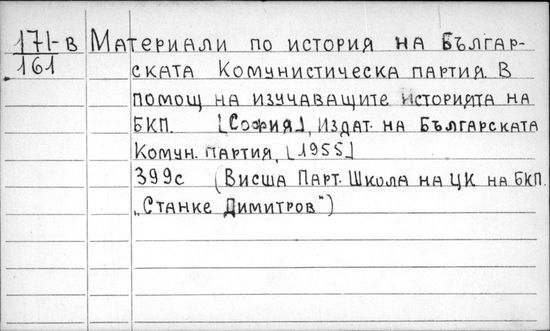 171-в
161
Материали по история на Българ-
ската Комунистическа партия. В
помощ на изучаващите историята на
БКП. [София], Издат. на Българската
Комун. партия, [1955]
399с (Висша Парт. Школа на ЦК на БКП.
„Станке Димитров")